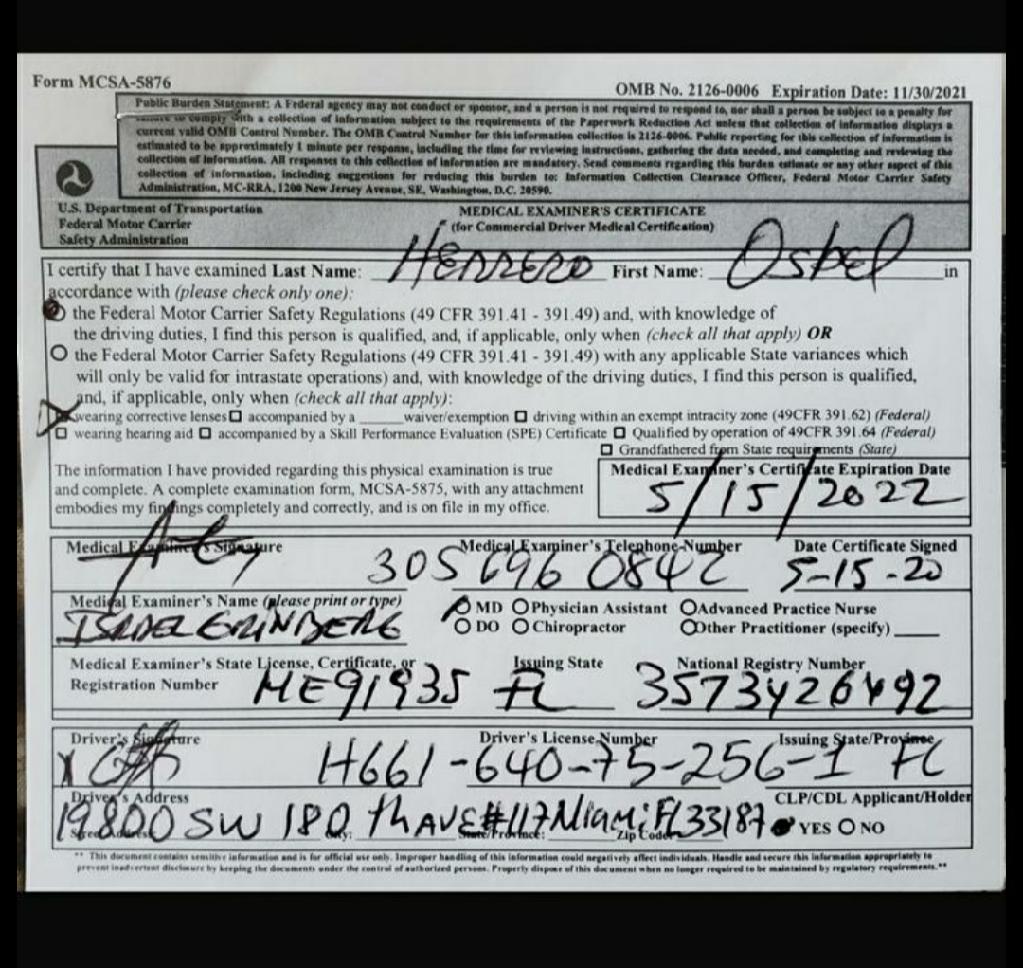 Form MCSA-5876
OMB No. 2126-0006 Expiration Date: 11/30/2021
Public Burden Statement: A Federal agency may not conduct or sponsor, and a person is not required to respond to, nor shall a person be subject to a penalty for
failure to comply with a collection of information subject to the requirements of the Paperwork Reduction Act unless that collection of information displays a
current valid OMB Control Number. The OMB Control Number for this information collection is 2126-0006. Public reporting for this collection of information is
estimated to be approximately 1 minute per response, including the time for reviewing instructions, gathering the data needed, and completing and reviewing the
collection of information. All responses to this collection of information are mandatory. Send comments regarding this burden estimate or any other aspect of this
collection of information, including suggestions for reducing this burden to: Information Collection Clearance Officer, Federal Motor Carrier Safety
Administration, MC-RRA, 1200 New Jersey Avenue, SE, Washington, D.C. 20590.
U.S. Department of Transportation
Federal Motor Carrier
Safety Administration
MEDICAL EXAMINER'S CERTIFICATE
(for Commercial Driver Medical Certification)
I certify that I have examined Last Name: HERRERO First Name: Osbel in
accordance with (please check only one):
the Federal Motor Carrier Safety Regulations (49 CFR 391.41 - 391.49) and, with knowledge of
the driving duties, I find this person is qualified, and, if applicable, only when (check all that apply) OR
the Federal Motor Carrier Safety Regulations (49 CFR 391.41 - 391.49) with any applicable State variances which
will only be valid for intrastate operations) and, with knowledge of the driving duties, I find this person is qualified,
and, if applicable, only when (check all that apply):
wearing corrective lenses accompanied by a ______waiver/exemption driving within an exempt intracity zone (49CFR 391.62) (Federal)
wearing hearing aid accompanied by a Skill Performance Evaluation (SPE) Certificate Qualified by operation of 49CFR 391.64 (Federal)
Grandfathered from State requirements (State)
The information I have provided regarding this physical examination is true
and complete. A complete examination form, MCSA-5875, with any attachment
embodies my findings completely and correctly, and is on file in my office.
Medical Examiner's Certificate Expiration Date
5/15/2022
Medical Examiner's Signature Medical Examiner's Telephone Number Date Certificate Signed
305 696 0842 5-15-20
Medical Examiner's Name (please print or type)
ISRAEL GRINBERG
MD Physician Assistant Advanced Practice Nurse
DO Chiropractor Other Practitioner (specify)_____
Medical Examiner's State License, Certificate, or
Registration Number ME91935
Issuing State
FL
National Registry Number
3573426492
Driver's Signature Driver's License Number Issuing State/Province
X H661-640-75-256-1 FL
Driver's Address CLP/CDL Applicant/Holder
19800 SW 180 th AVE #117 Miami Fl 33187 YES NO
Street Address: City: State/Province: Zip Code:
** This document contains sensitive information and is for official use only. Improper handling of this information could negatively affect individuals. Handle and secure this information appropriately to
prevent inadvertent disclosure by keeping the documents under the control of authorized persons. Properly dispose of this document when no longer required to be maintained by regulatory requirements.**